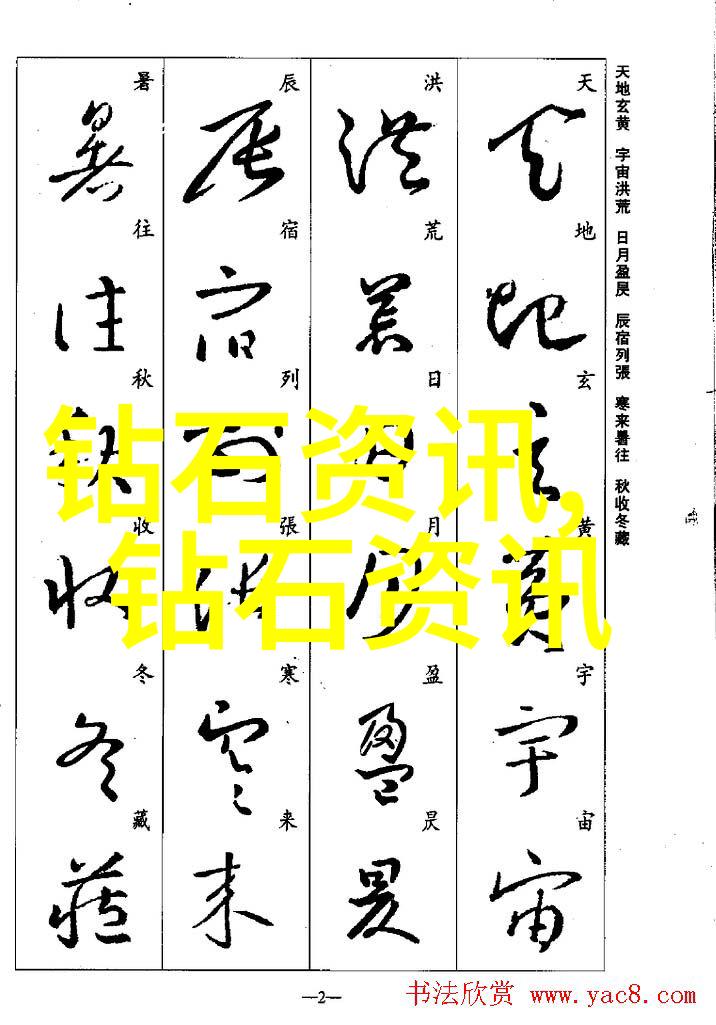 天地玄黄 宇宙洪荒 日月盈昃 辰宿列張 寒来暑往 秋收冬藏
天地玄黄宇宙
洪荒日月盈昃
辰宿列張寒来
暑往秋收冬藏
钻石资讯,
钻石资讯
—2—
书法欣赏 www.yac8.com